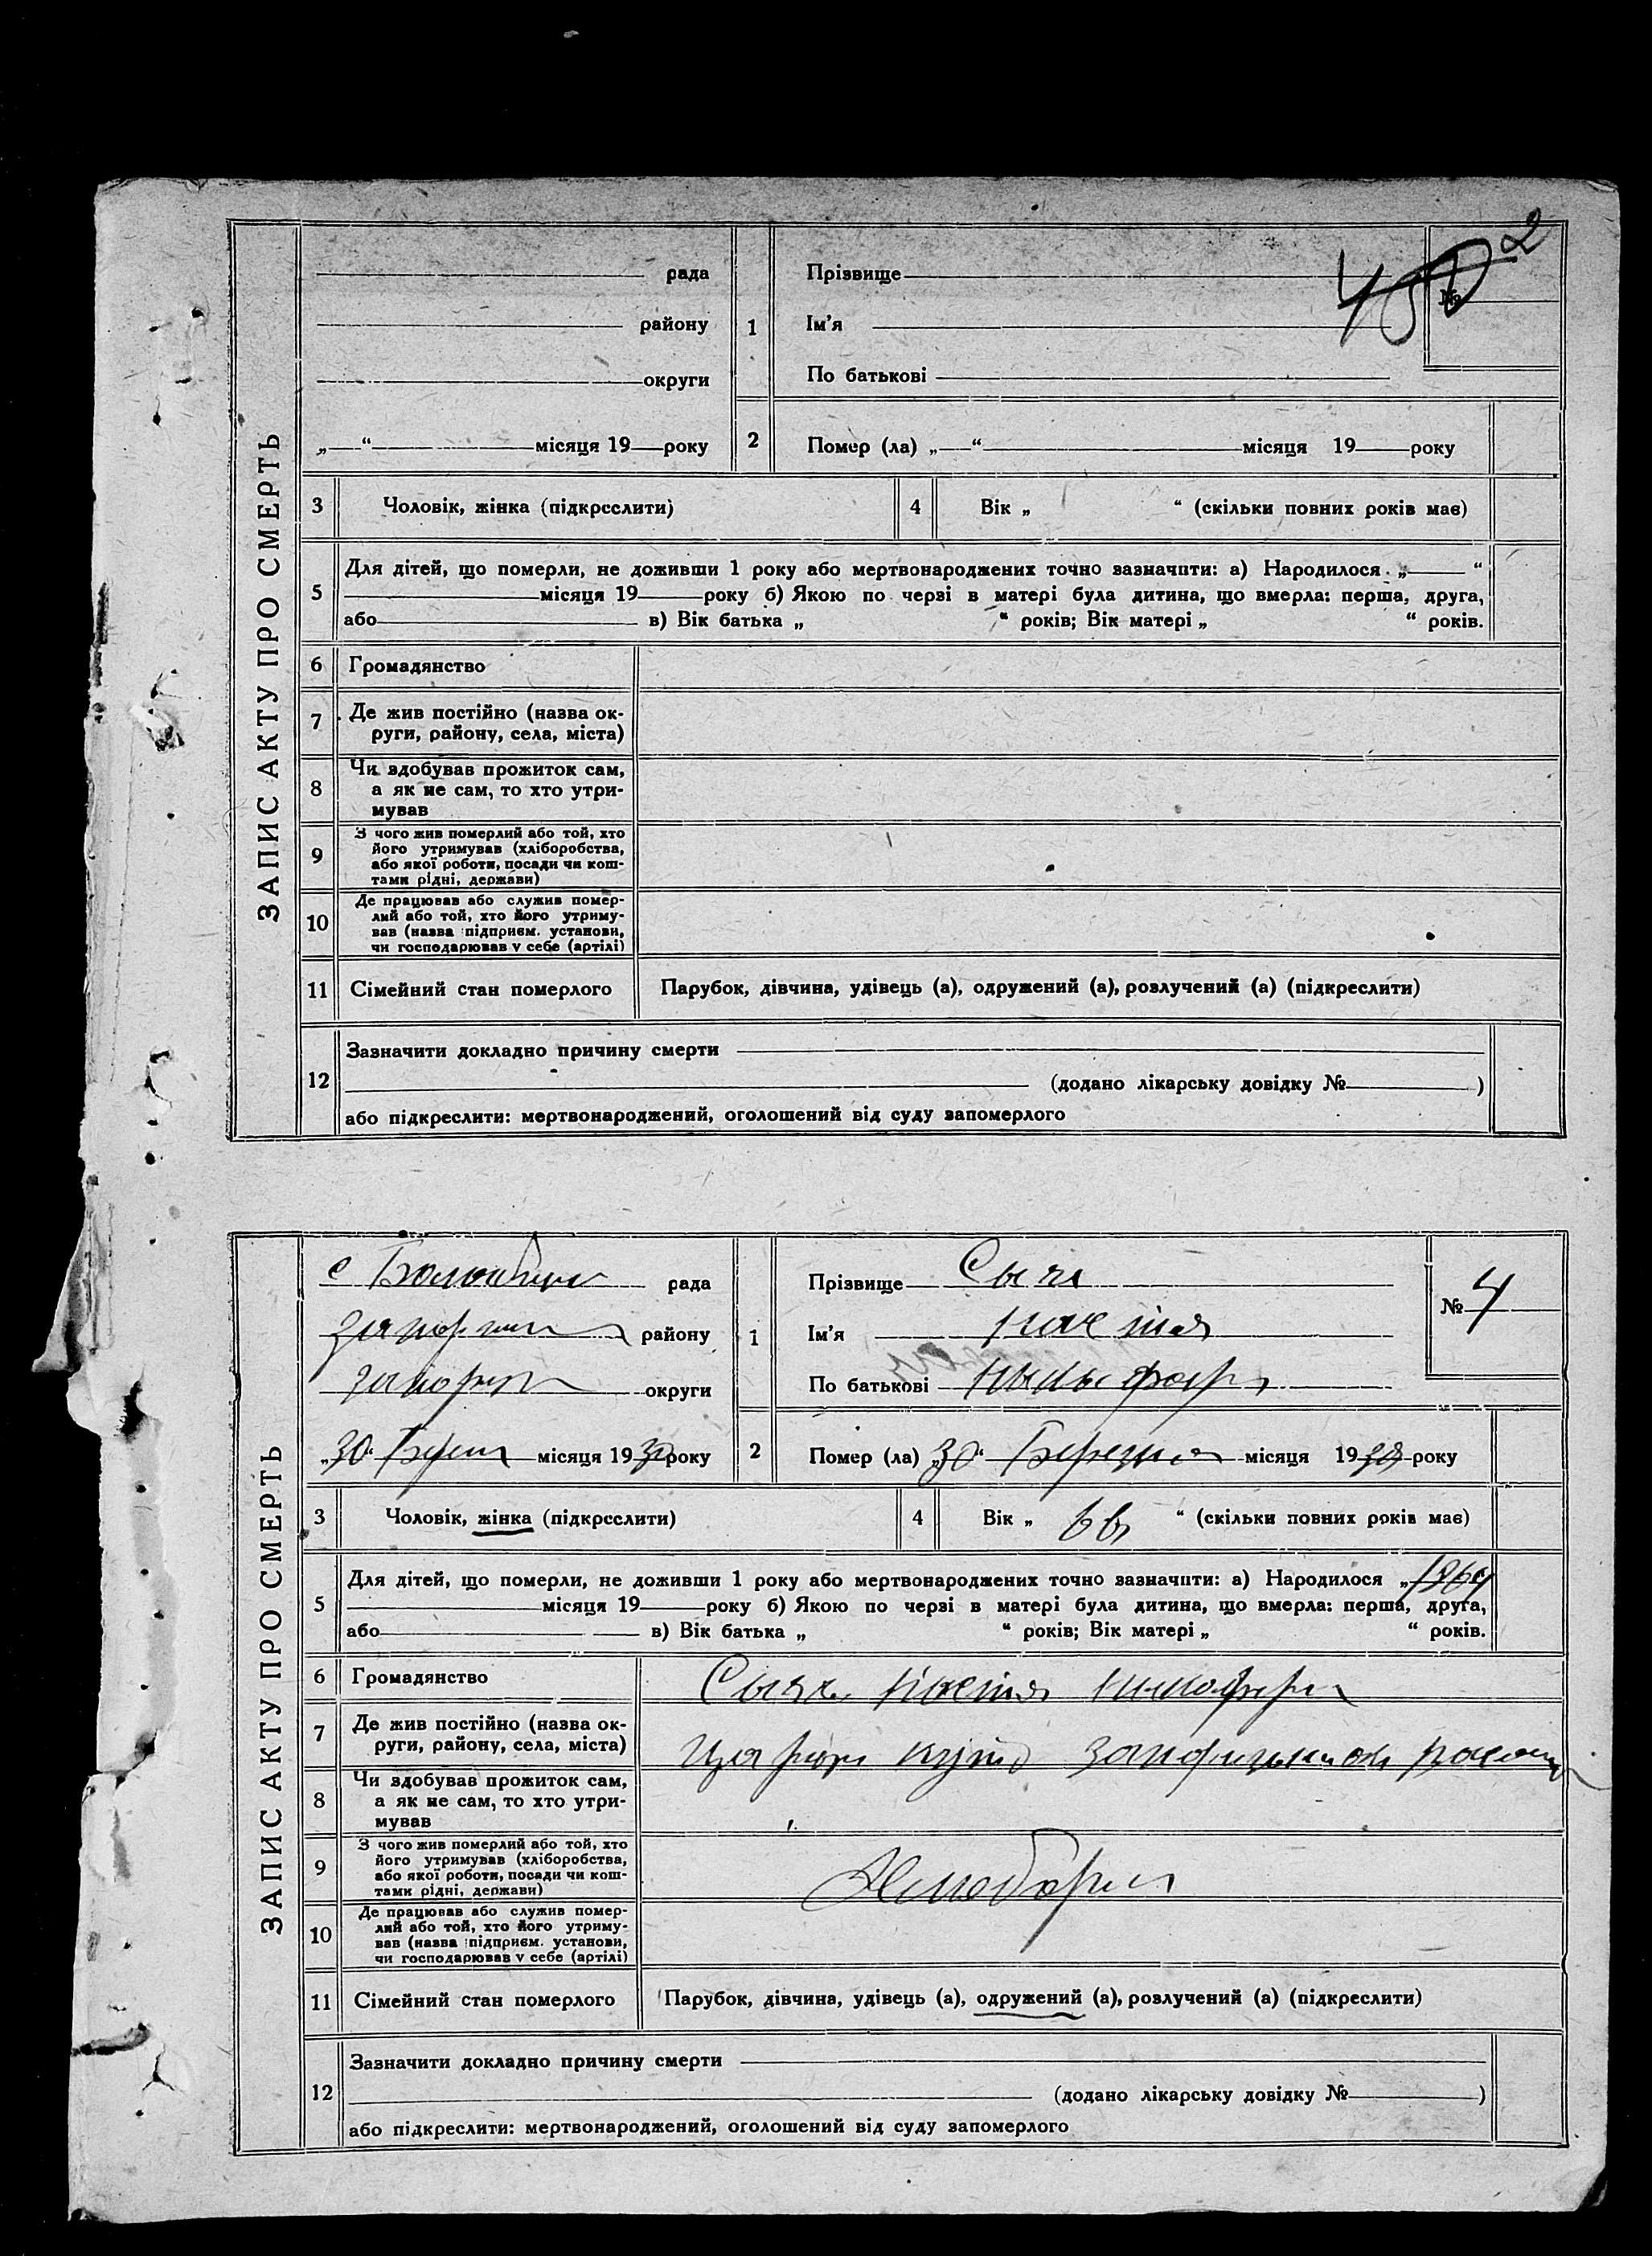 ЗАПИС АКТУ ПРО СМЕРТЬ
рада
району
округи
„ “ місяця 19 року
1 Прізвище
Ім'я
По батькові
№
2
2 Помер (ла) „ “ місяця 19 року
3 Чоловік, жінка (підкреслити)
4 Вік „ “ (скільки повних років має)
5 Для дітей, що померли, не доживши 1 року або мертвонароджених точно зазначити: а) Народилося „ “
місяця 19 року б) Якою по черзі в матері була дитина, що вмерла: перша, друга,
або в) Вік батька „ “ років; Вік матері „ “ років.
6 Громадянство
7 Де жив постійно (назва ок-
руги, району, села, міста)
8 Чи здобував прожиток сам,
а як не сам, то хто утри-
мував
9 З чого жив померлий або той, хто
його утримував (хліборобства,
або якої роботи, посади чи кош-
тами рідні, держави)
10 Де працював або служив помер-
лий або той, хто його утриму-
вав (назва підприєм. установи,
чи господарював у себе (артілі)
11 Сімейний стан померлого Парубок, дівчина, удівець (а), одружений (а), розлучений (а) (підкреслити)
12 Зазначити докладно причину смерти
(додано лікарську довідку № )
або підкреслити: мертвонароджений, оголошений від суду запомерлого
ЗАПИС АКТУ ПРО СМЕРТЬ
с рада
району
округи
„30“ місяця 1930 року
1 Прізвище Сыч
Ім'я
По батькові
№ 4
2 Помер (ла) „30“ Березня місяця 1930 року
3 Чоловік, жінка (підкреслити)
4 Вік „ 66 “ (скільки повних років має)
5 Для дітей, що померли, не доживши 1 року або мертвонароджених точно зазначити: а) Народилося „1864
місяця 19 року б) Якою по черзі в матері була дитина, що вмерла: перша, друга,
або в) Вік батька „ “ років; Вік матері „ “ років.
6 Громадянство
7 Де жив постійно (назва ок-
руги, району, села, міста)
8 Чи здобував прожиток сам,
а як не сам, то хто утри-
мував
9 З чого жив померлий або той, хто
його утримував (хліборобства,
або якої роботи, посади чи кош-
тами рідні, держави)
10 Де працював або служив помер-
лий або той, хто його утриму-
вав (назва підприєм. установи,
чи господарював у себе (артілі)
11 Сімейний стан померлого Парубок, дівчина, удівець (а), одружений (а), розлучений (а) (підкреслити)
12 Зазначити докладно причину смерти
(додано лікарську довідку № )
або підкреслити: мертвонароджений, оголошений від суду запомерлого